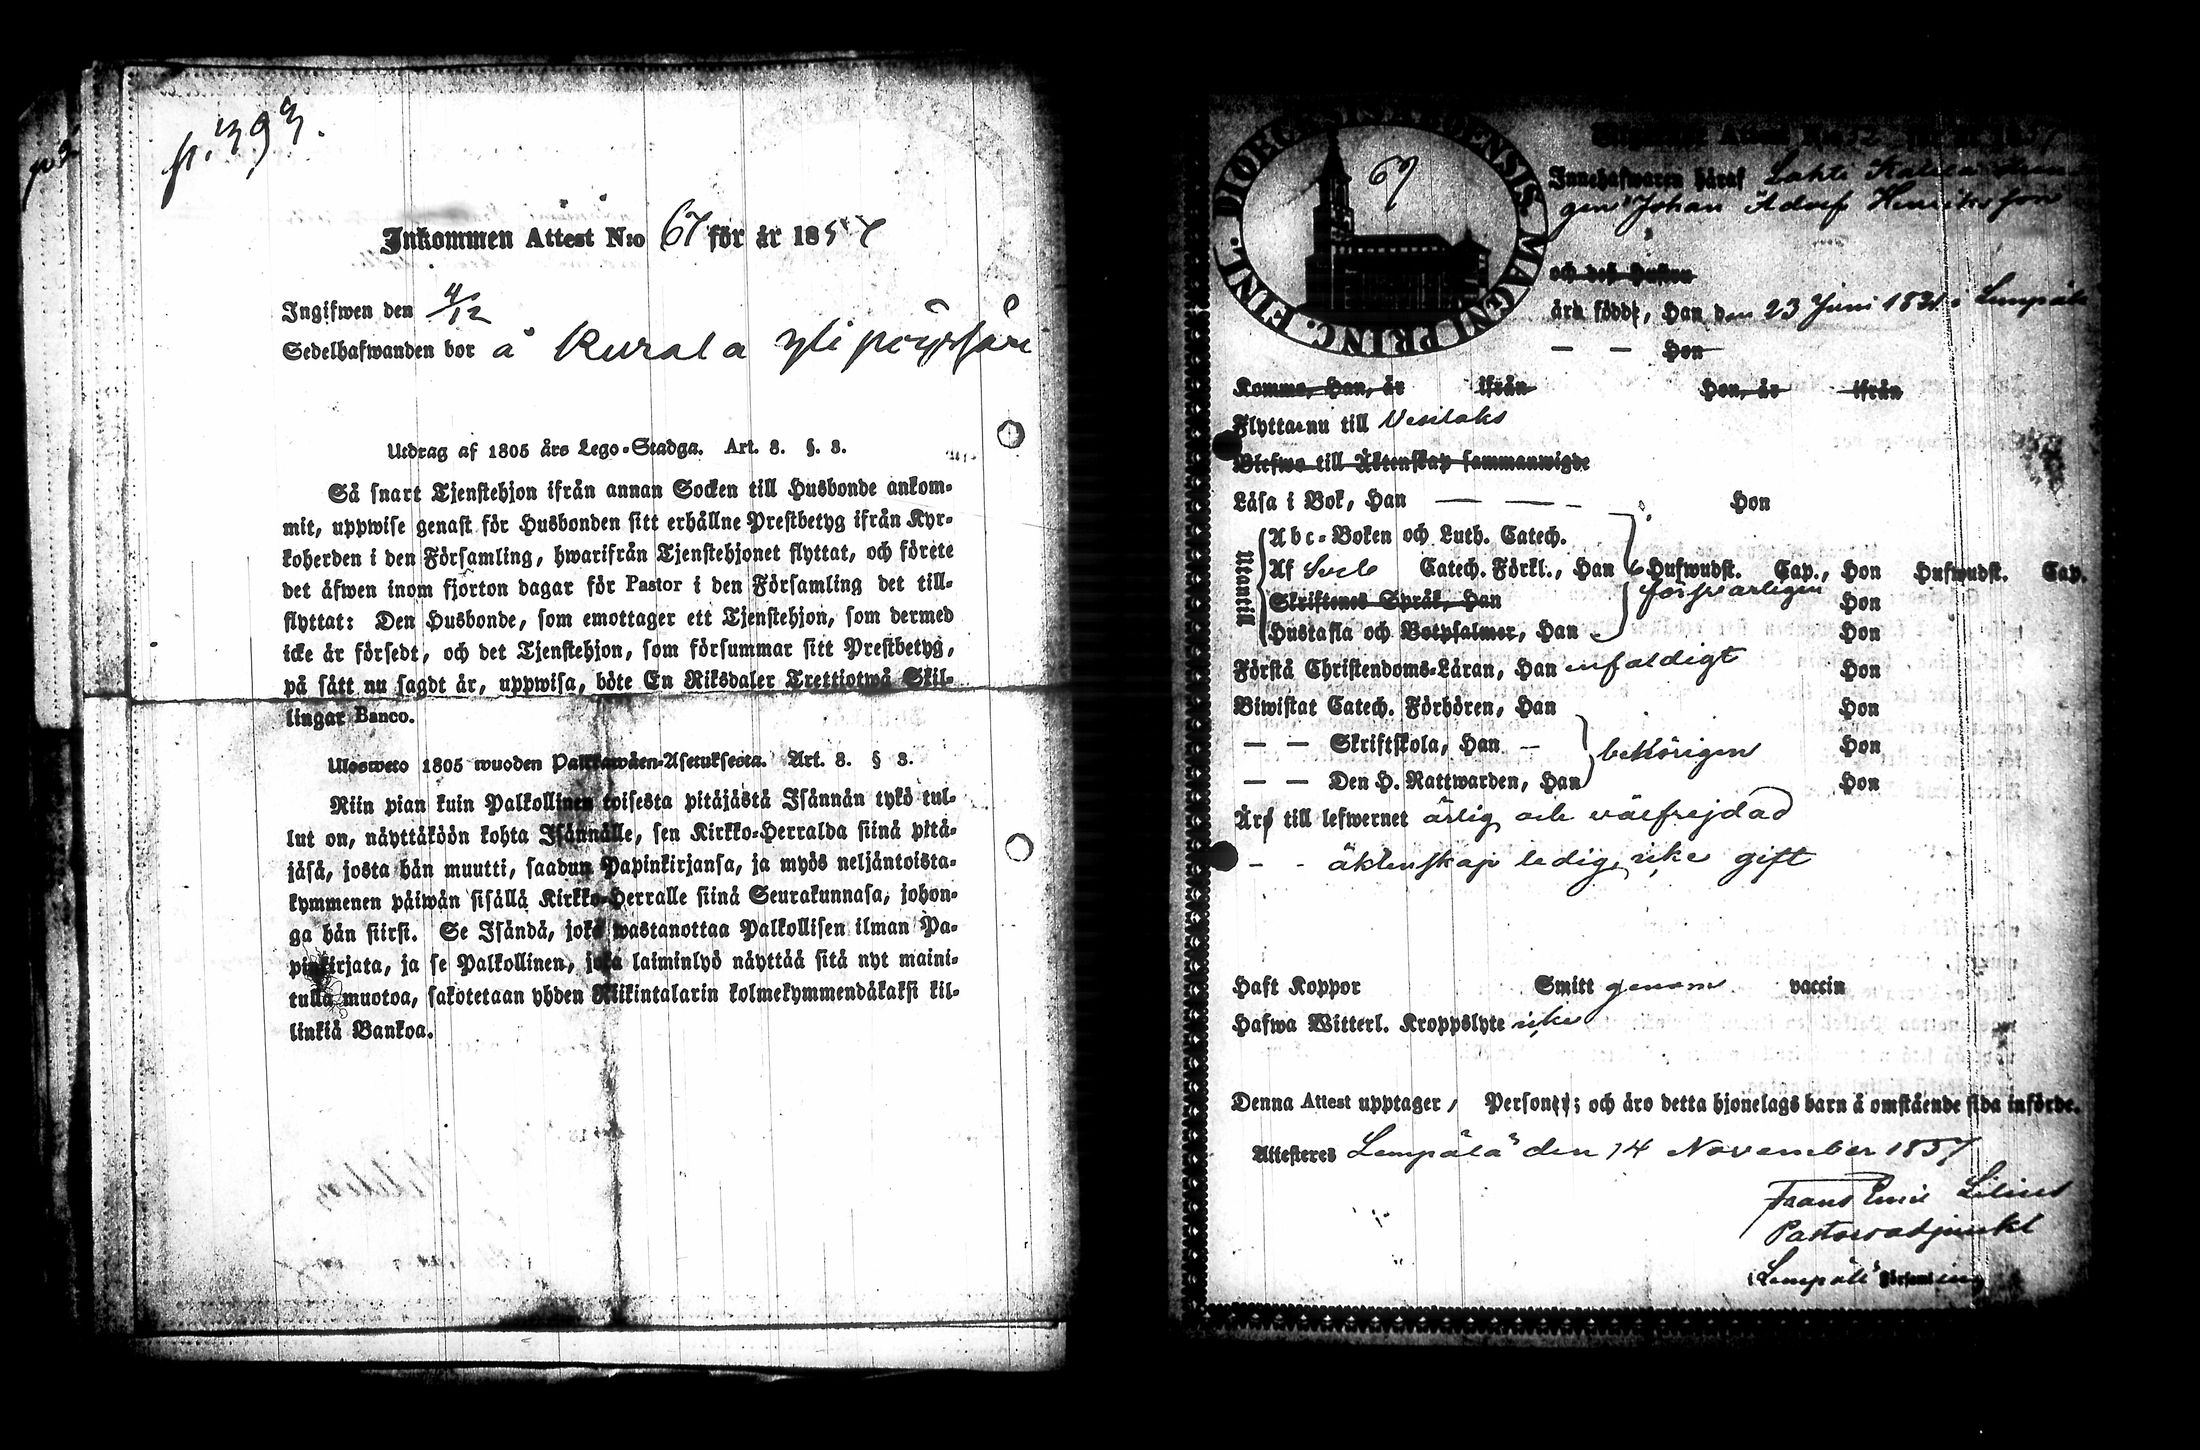 p. 393.
Inkommen Attest N:o 67 för år 1857
Ingifwen den 4/12
Sedelhafwanden bor å Kurala yli pöyhäri
Utdrag af 1805 års Lego-Stadga. Art. 3. §. 3.
Så snart Tjenstehjon ifrån annan Socken till Husbonde ankom-
mit, uppwise genast för Husbonden sitt erhållne Prestbetyg ifrån Kyr-
koherden i den Församling, hwarifrån Tjenstehjonet flyttat, och förete
det äfwen inom fjorton dagar för Pastor i den Församling det till-
flyttat: Den Husbonde, som emottager ett Tjenstehjon, som dermed
icke är försedt, och det Tjenstehjon, som försummar sitt Prestbetyg,
på sätt nu sagdt är, uppwisa, böte En Riksdaler Trettiotwå Skil-
lingar Banco.
Ulosweto 1805 wuoden Palkkawäen-Asetuksesta. Art. 3. § 3.
Niin pian kuin Palkollinen toisesta pitäjästä Isännän tykö tul-
lut on, näyttäköön kohta Isännälle, sen Kirkko-Herralda siinä pitä-
jäsä, josta hän muutti, saadun Papinkirjansa, ja myös neljäntoista-
kymmenen päiwän sisällä Kirkko-Herralle siinä Seurakunnasa, johon-
ga hän siirsi. Se Isändä, joka wastanottaa Palkollisen ilman Pa-
pinkirjata, ja se Palkollinen, joka laiminlyö näyttää sitä nyt maini-
tulla muotoa, sakotetaan yhden Riikintalarin kolmekymmendäkaksi kil-
linkiä Bankoa.
DIOECESIS ABOENSIS. MAGNI PRINC. FINL.
67
Innehafwaren häraf Lahti Kalila drän-
gen Johan Adolf Henriksson
och dess Hustru
äro födde, Han den 23 Juni 1831 i Lempälä
— — Hon
Komme, Han, år ifrån Hon, år ifrån
Flytta nu till Vesilaks
Blefwo till Äktenskap sammanwigde
Läsa i Bok, Han — — - Hon
Utantill
Abc-Boken och Luth. Catech.
Af Sveb Catech. Förkl., Han 6 Hufwudst. Cap., Hon Hufwudst. Cap.
Skriftenes Språk, Han försvarligen Hon
Hustafla och Botpsalmer, Han Hon
Förstå Christendoms-Läran, Han enfaldigt Hon
Biwistat Catech. Förhören, Han Hon
— — Skriftskola, Han — behörigen Hon
— — Den H. Nattwarden, Han Hon
Äro till lefwernet ärlig och välfrejdad
- - äktenskap ledig, icke gift
Haft Koppor Smitt genom vaccin
Hafwa Witterl. Kroppslyte icke
Denna Attest upptager 1 Person(er); och äro detta hjonelags barn å omstående sida införde.
Attesteres Lempälä den 14 November 1857
Frans Emil Lilius
Pastorsadjunkt
i Lempälä Församling